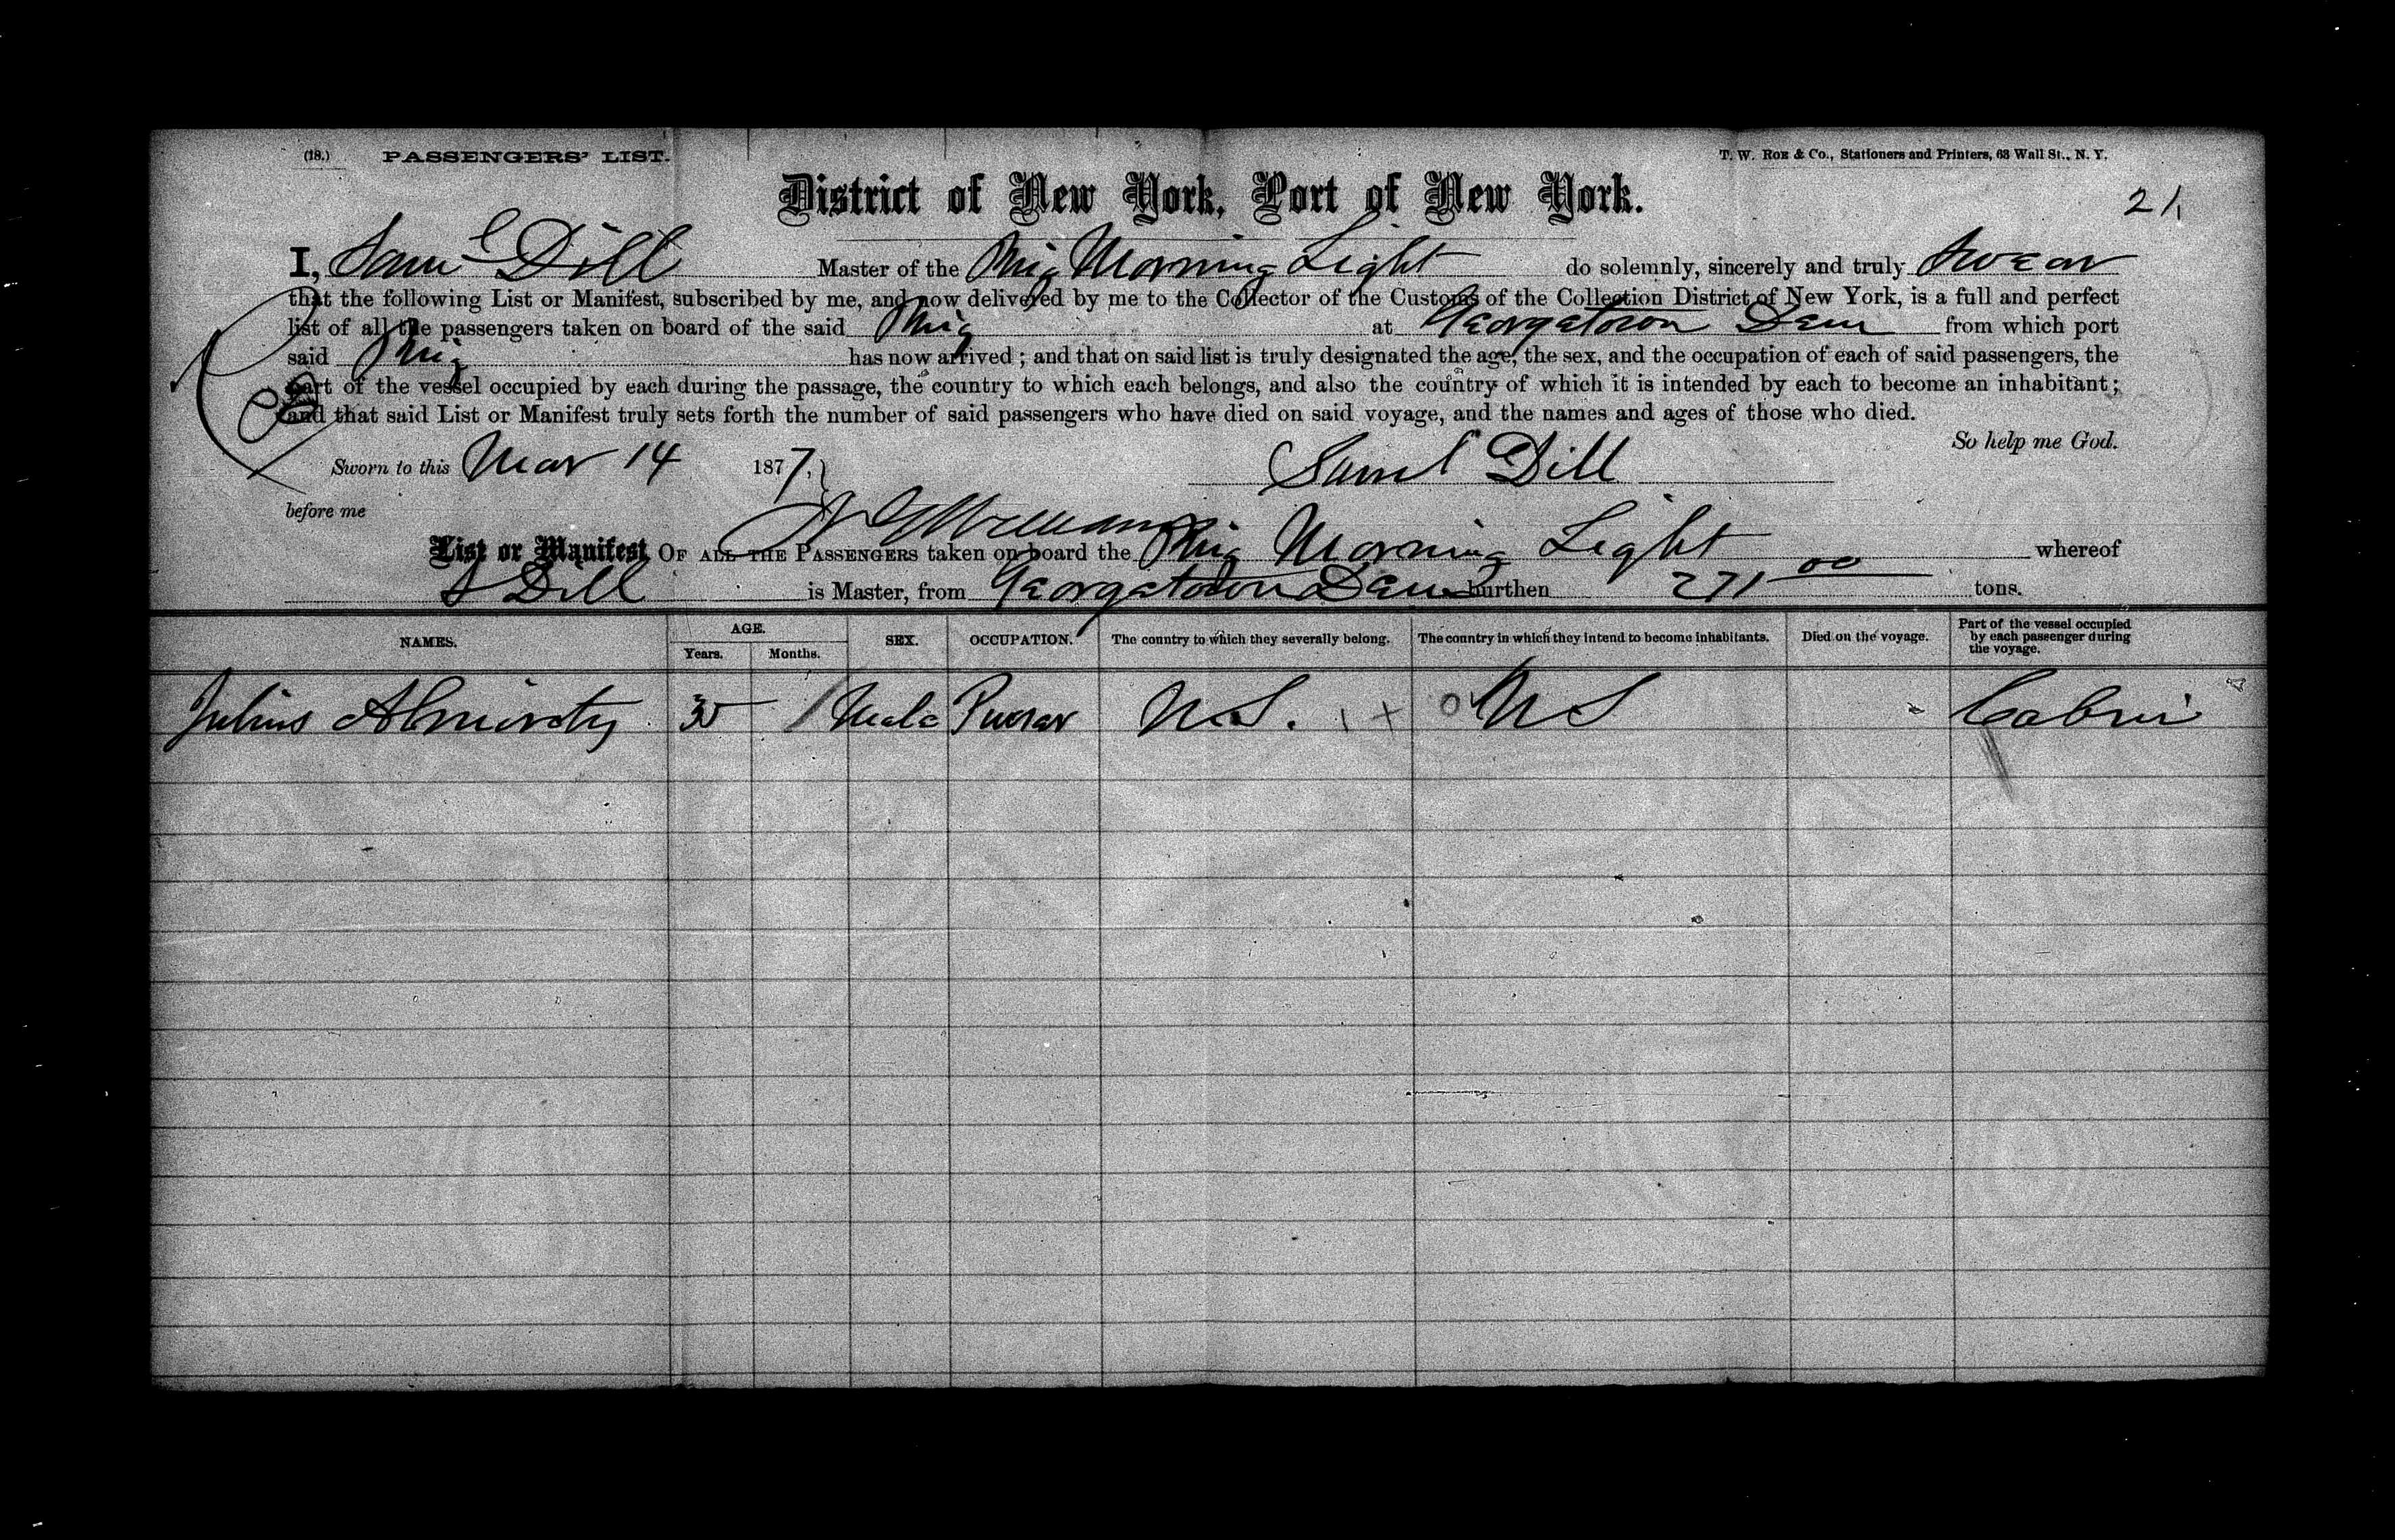 (18.) PASSENGERS' LIST.
T. W. Roe & Co., Stationers and Printers, 63 Wall St., N. Y.
District of New York, Port of New York.
21
I, Saml Dill Master of the Brig Morning Light do solemnly, sincerely and truly Swear
that the following List or Manifest, subscribed by me, and now delivered by me to the Collector of the Customs of the Collection District of New York, is a full and perfect
list of all the passengers taken on board of the said Brig at Georgetown Dem from which port
said Brig has now arrived; and that on said list is truly designated the age, the sex, and the occupation of each of said passengers, the
part of the vessel occupied by each during the passage, the country to which each belongs, and also the country of which it is intended by each to become an inhabitant;
and that said List or Manifest truly sets forth the number of said passengers who have died on said voyage, and the names and ages of those who died.
So help me God.
Sworn to this Mar 14 1877, Saml Dill
before me
List or Manifest OF ALL THE PASSENGERS taken on board the Brig Morning Light whereof
S Dill is Master, from Georgetown Dem burthen 271 00 tons.
NAMES. AGE. Years. Months. SEX. OCCUPATION. The country to which they severally belong. The country in which they intend to become inhabitants. Died on the voyage. Part of the vessel occupied by each passenger during the voyage.
Julius Male U.S. U S Cabin